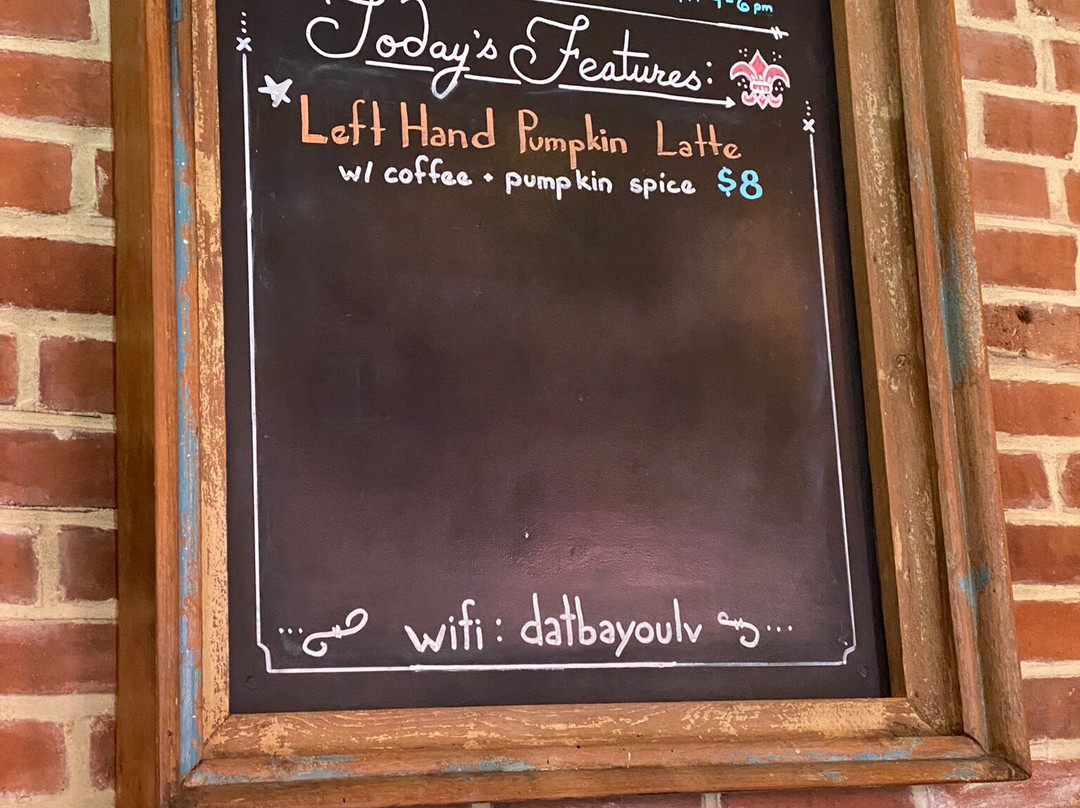 4-6pm
Today's Features:
Left Hand Pumpkin Latte
w/ coffee + pumpkin spice $8
wifi: datbayoulv